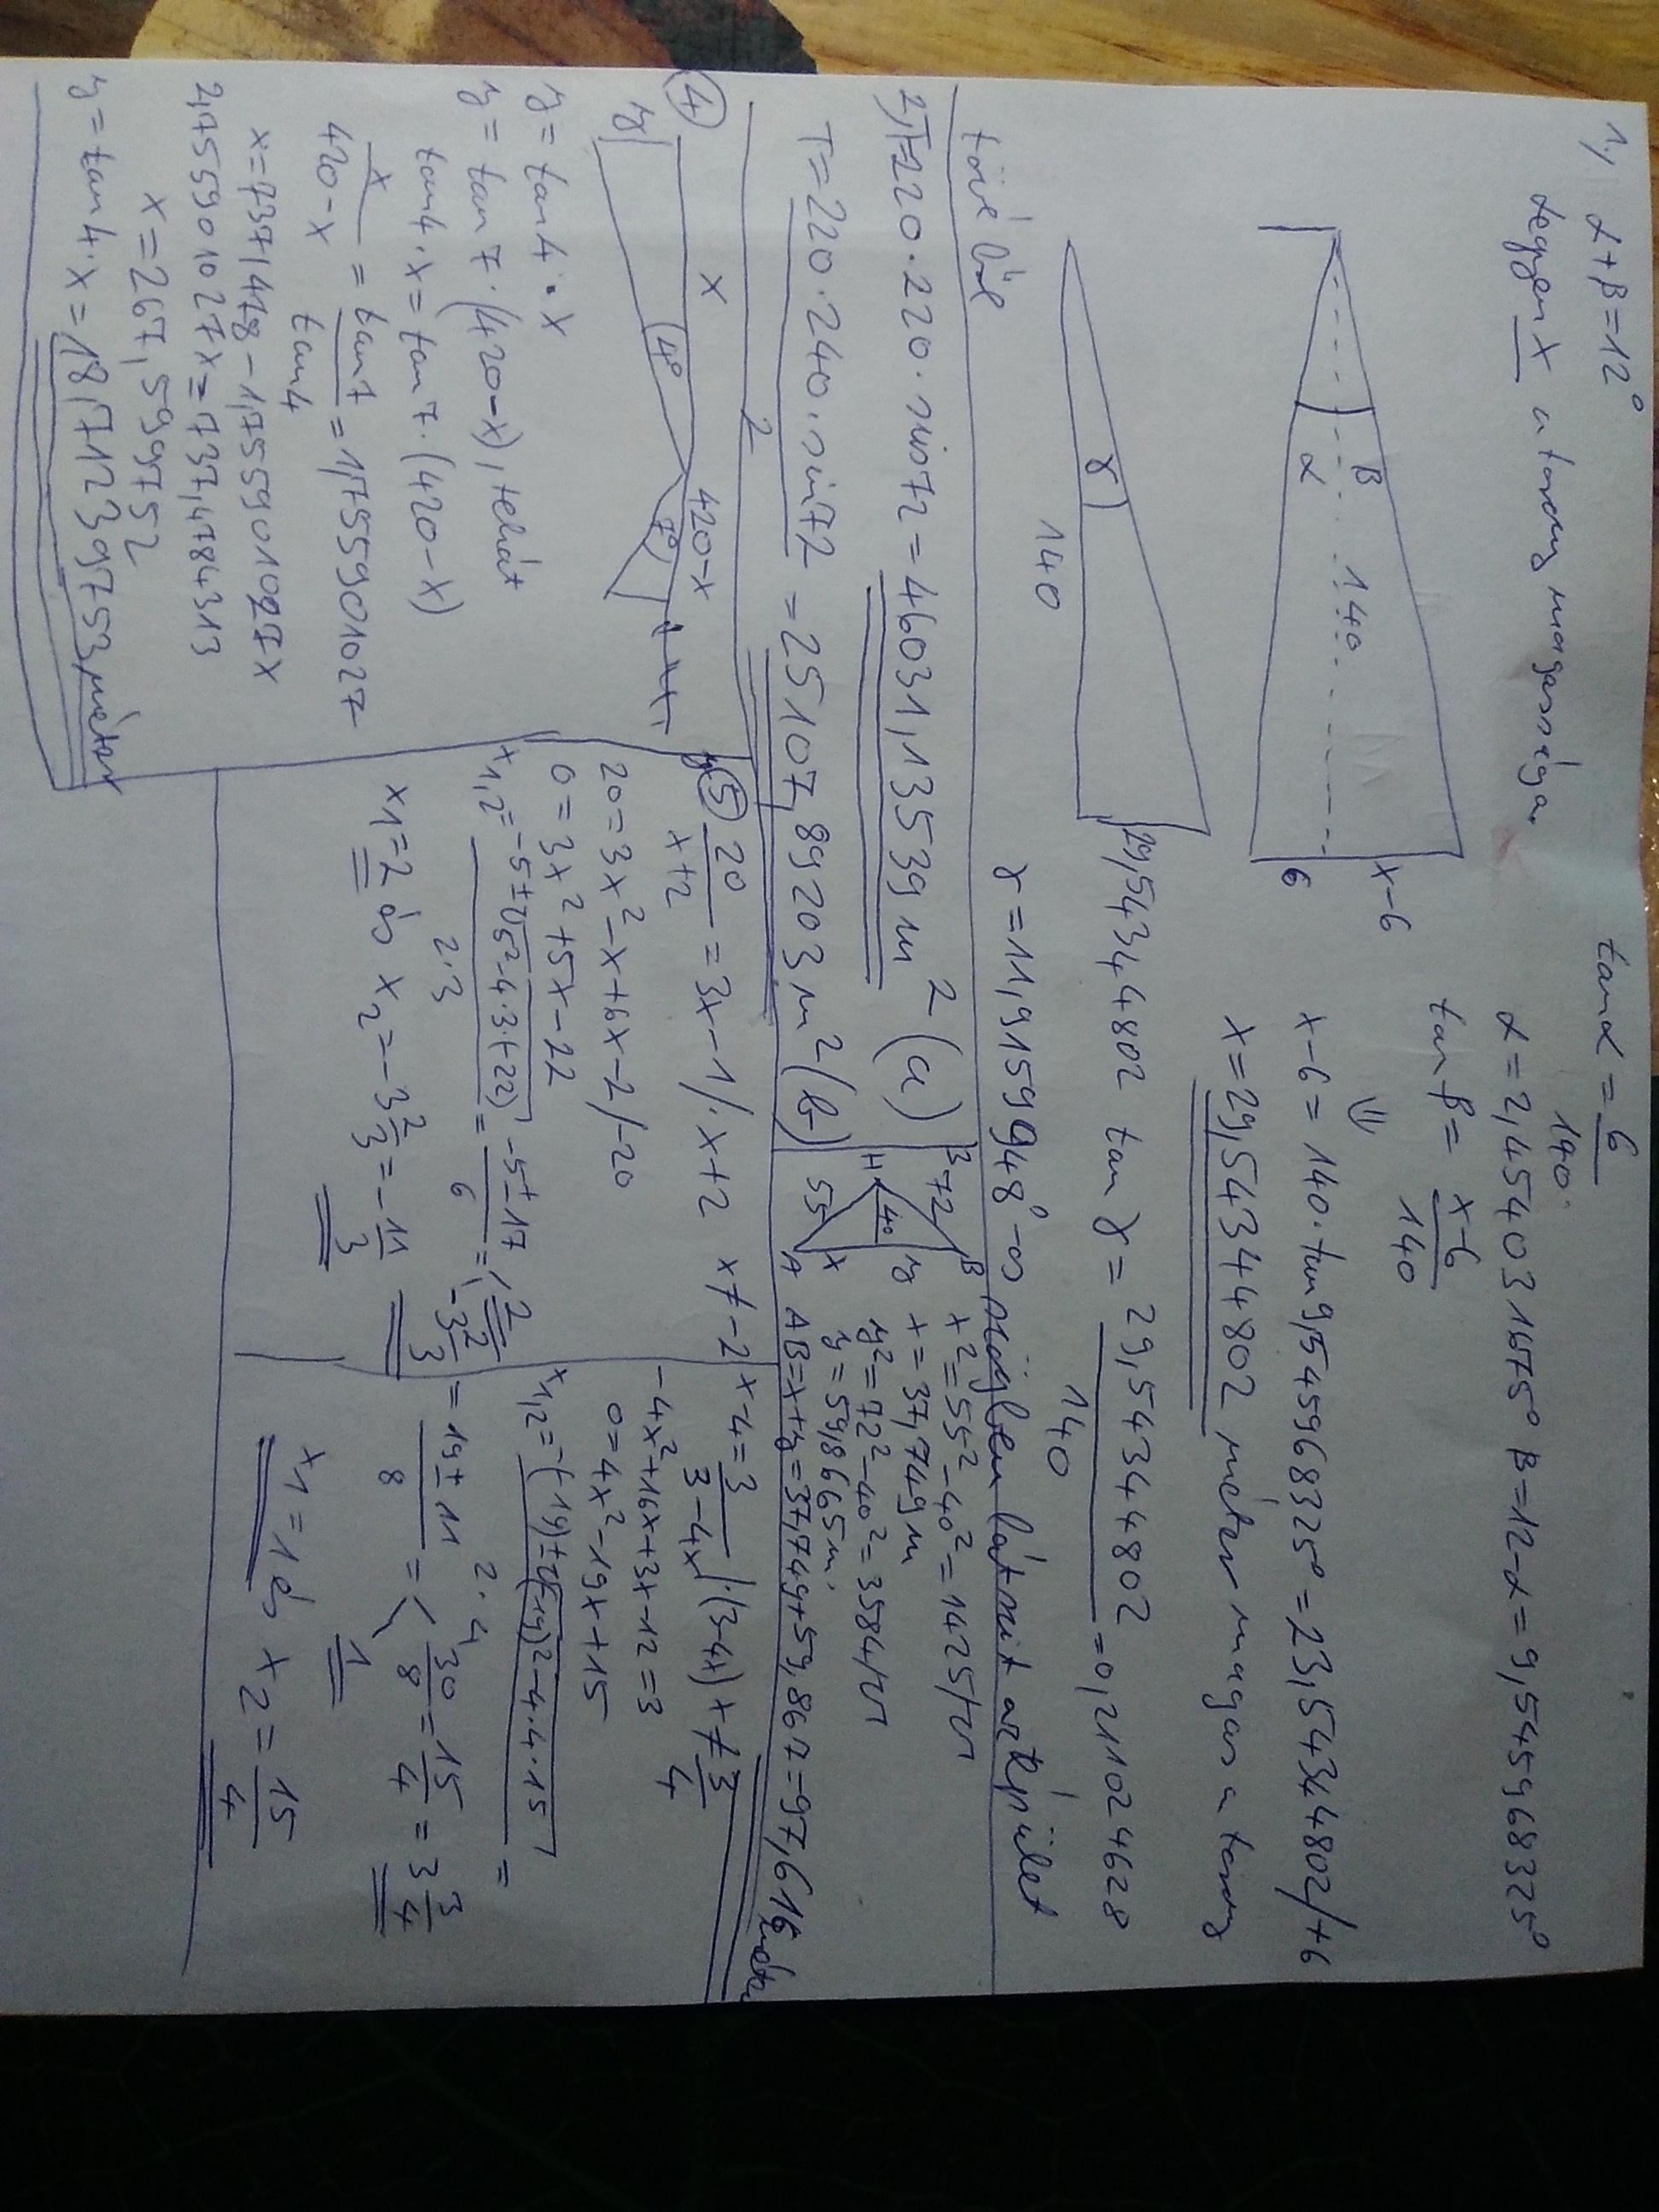 1.) α+β=12°
legyen x a torony magassága
tanα = 6/140
α = 2,454031675° β=12-α = 9,545968325°
tan β = x-6/140
⇓
x-6 = 140·tan 9,545968325° = 23,54344802/+6
x = 29,54344802 méter magas a torony
β 140 x-6
α 6
γ 29,54344802
140
tan γ = 29,54344802/140 = 0,211024628
γ = 11,9159948°-os szögben látszik az épület
tövéből
2) T=220·220·sin72 = 46031,13539 m² (a)
T = 220·240·sin72/2 = 25107,89203 m² (b)
B 72 B y
H 40
55 x A
x² = 55²-40² = 1425/√
x = 37,749 m
y² = 72²-40² = 3584/√
y = 59,8665 m
AB=x+y=37,749+59,867=97,616 méter
④ x 420-x
y 4° 7°
y = tan4·x
y = tan7·(420-x), tehát
tan4·x = tan7·(420-x)
x/420-x = tan7/tan4 = 1,755901027
x = 737,478-1,755901027x
2,755901027x = 737,4784313
x = 267,5999752
y = tan4·x = 18,71239753 méter
⑤ 20/x+2 = 3x-1/·x+2 x≠-2
20 = 3x²-x+6x-2/-20
0 = 3x²+5x-22
x1,2 = -5±√5²-4·3·(-22)/2·3 = -5±17/6 = 2 -3 2/3
x1=2 és x2=-3 2/3 = -11/3
x-4 = 3/3-4x /·(3-4x) x≠3/4
-4x²+16x+3x-12=3
0=4x²-19x+15
x1,2 = -(-19)±√(-19)²-4·4·15/2·4 =
= 19±11/8 = 30/8 = 15/4 = 3 3/4
1
x1 = 1 és x2 = 15/4